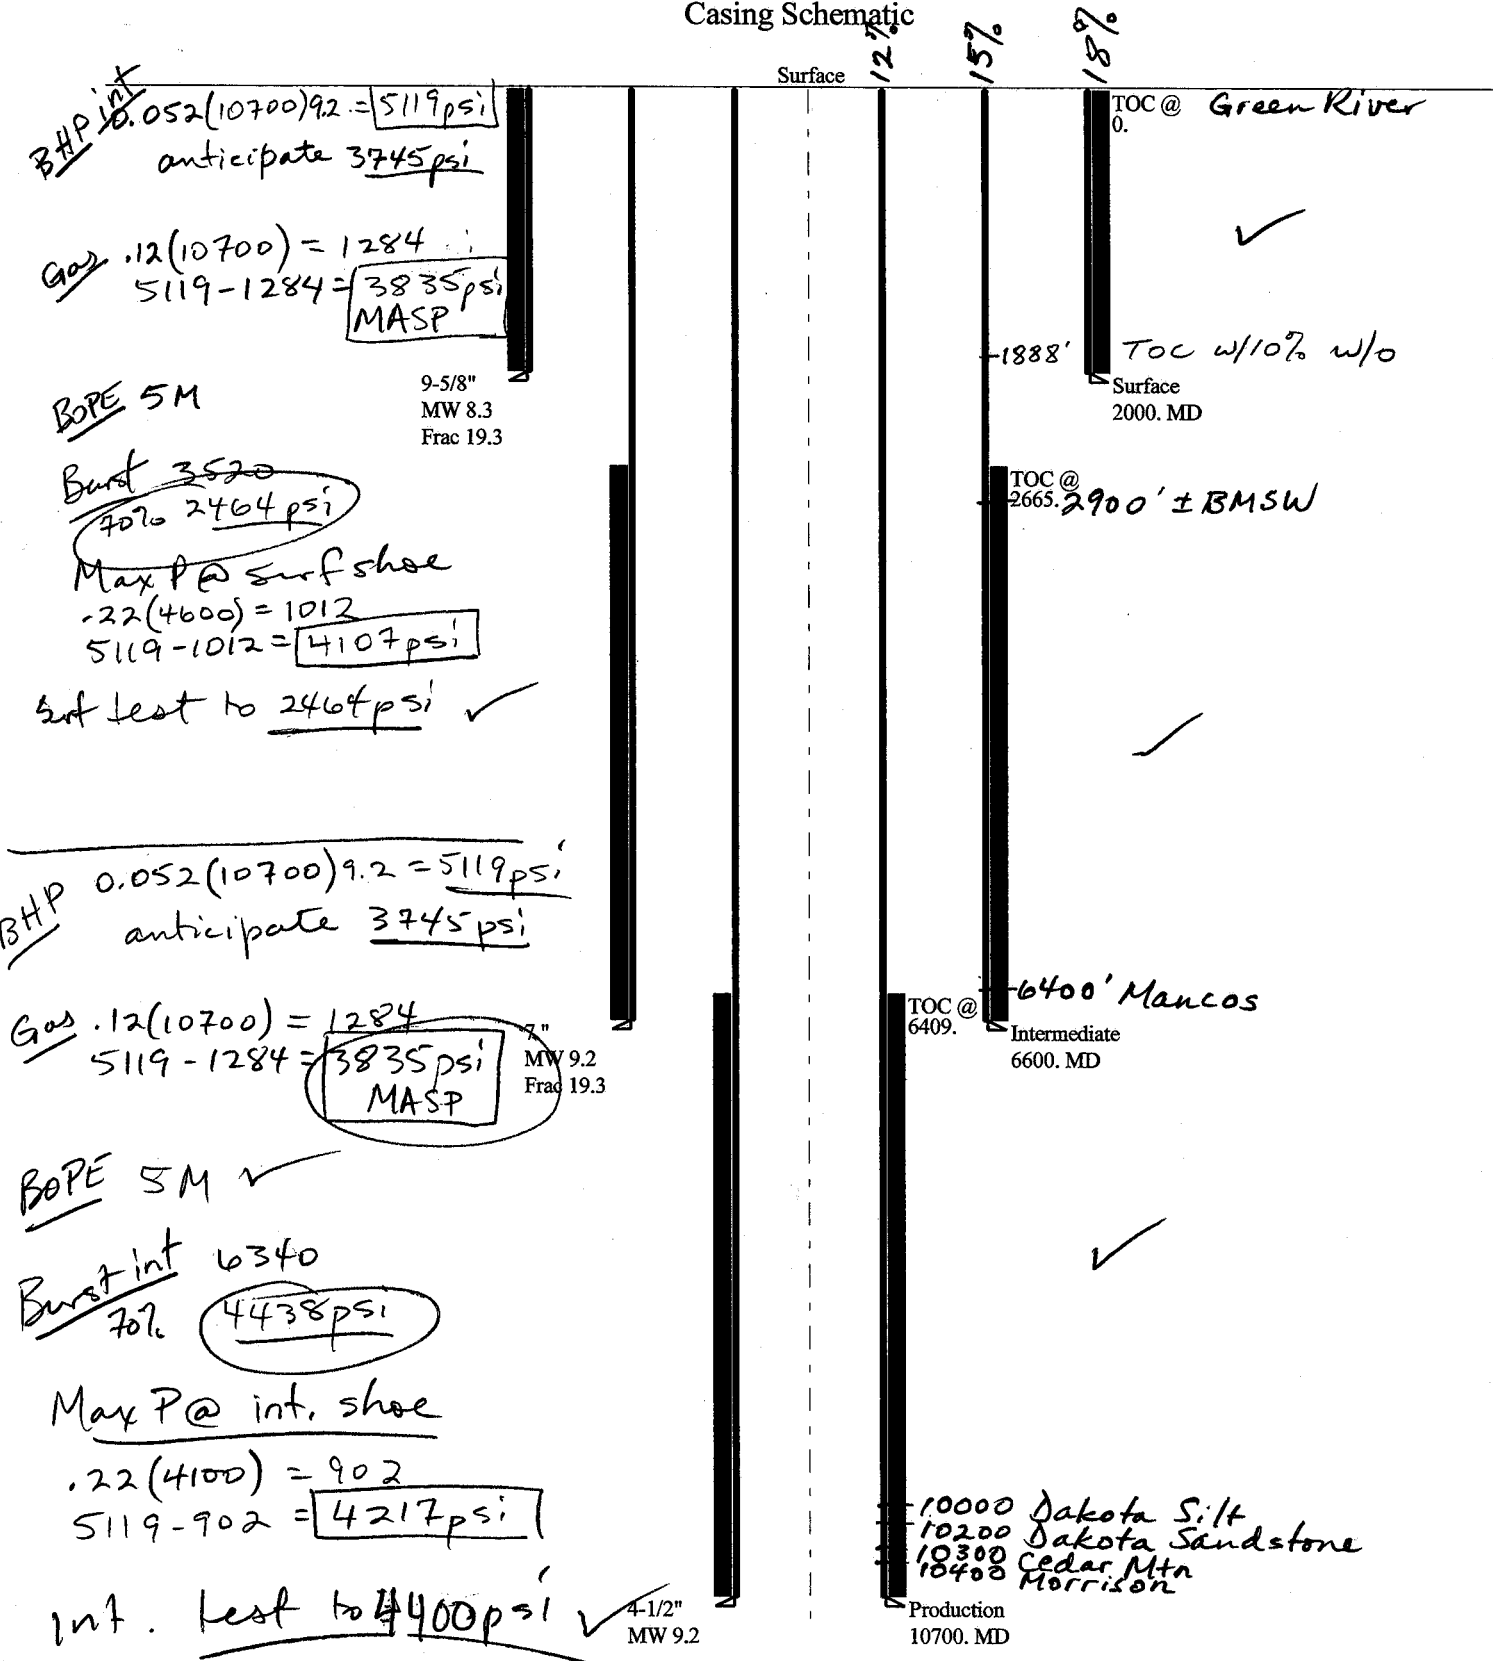 Casing Schematic
12%
15%
18%
Surface
BHP int
0.052(10700)9.2 = 5119psi
anticipate 3745psi
Gas .12(10700) = 1284
5119-1284 = 3835psi
MASP
BOPE 5M
Burst 3520
70% 2464psi
Max P@ surf shoe
.22(4600) = 1012
5119-1012 = 4107psi
surf test to 2464psi ✓
9-5/8"
MW 8.3
Frac 19.3
TOC @ Green River
0.
✓
1888' TOC w/10% w/o
Surface
2000. MD
TOC @
2665. 2900' ± BMSW
✓
BHP 0.052(10700)9.2 = 5119psi
anticipate 3745psi
Gas .12(10700) = 1284
5119-1284 = 3835psi
MASP
7"
MW 9.2
Frac 19.3
6400' Mancos
TOC @
6409.
Intermediate
6600. MD
BOPE 5M ✓
Burst int 6340
70% 4438psi
✓
Max P@ int. shoe
.22(4100) = 902
5119-902 = 4217psi
Int. test to 4400psi ✓
10000 Dakota Silt
10200 Dakota Sandstone
10300 Cedar Mtn
10400 Morrison
4-1/2"
MW 9.2
Production
10700. MD